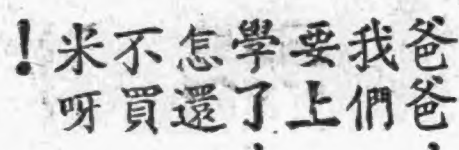 爸爸,
我們
要上
學了,
怎還
不買
米呀
!